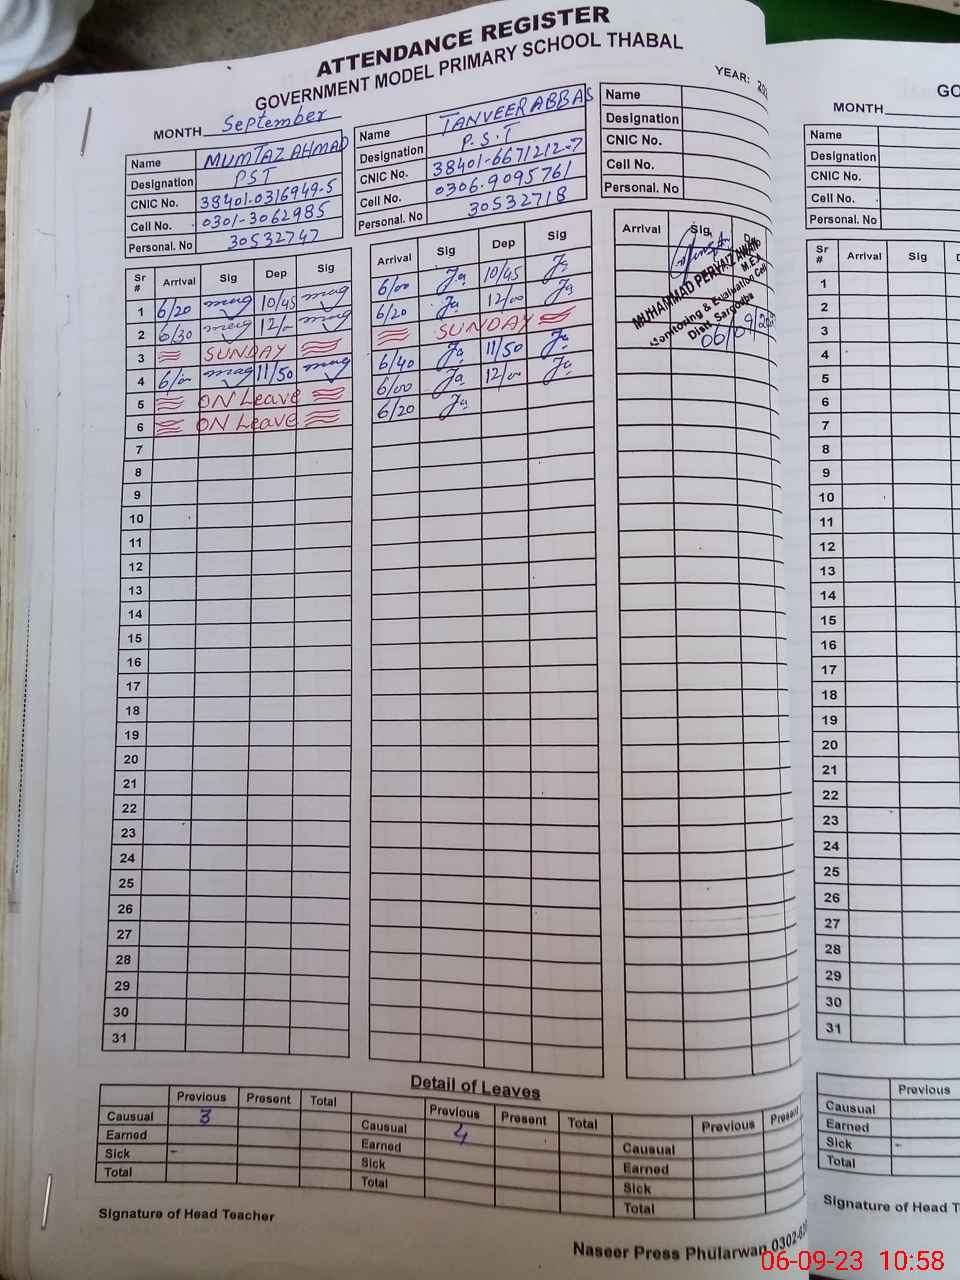 ATTENDANCE REGISTER
GOVERNMENT MODEL PRIMARY SCHOOL THABAL
MONTH September
YEAR:
Name MUMTAZ AHMAD
Designation PST
CNIC No. 38401-0316949-5
Cell No. 0301-3062985
Personal. No 30532747
Name TANVEER ABBAS
Designation P.S.T
CNIC No. 38401-6671212-7
Cell No. 0306-9095761
Personal. No 30532718
Name
Designation
CNIC No.
Cell No.
Personal. No
Sr # Arrival Sig Dep Sig Arrival Sig Dep Sig Arrival Sig
1 6/20 10/45 6/00 10/45
2 6/30 12/00 6/20 12/00
3 SUNDAY SUNDAY
4 6/00 11/50 6/40 11/50
5 ON Leave 6/00 12/00
6 ON Leave 6/20
7
8
9
10
11
12
13
14
15
16
17
18
19
20
21
22
23
24
25
26
27
28
29
30
31
MUHAMMAD PERVAIZ AWAN
M.E.A
Monitoring & Evaluation Cell
Distt. Sargodha
06/09/2023
Detail of Leaves
Previous Present Total Previous Present Total Previous Present
Causual 3 Causual 4 Causual
Earned Earned Earned
Sick - Sick Sick
Total Total Total
Signature of Head Teacher
Naseer Press Phularwan 0302-
GO
MONTH
Name
Designation
CNIC No.
Cell No.
Personal. No
Sr # Arrival Sig
1
2
3
4
5
6
7
8
9
10
11
12
13
14
15
16
17
18
19
20
21
22
23
24
25
26
27
28
29
30
31
Previous
Causual
Earned
Sick -
Total
Signature of Head
06-09-23 10:58